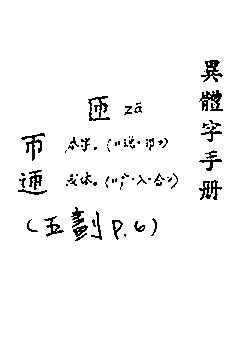 異體字手册
匝 zā
帀 本字。(《说·帀》)
迊 或体。(《广·入·合》)
(五劃 P.6)